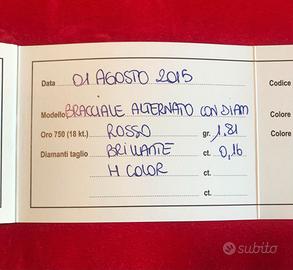 Data 01 AGOSTO 2015
Codice
Modello BRACCIALE ALTERNATO CON DIAM
Colore
Oro 750 (18 kt.) ROSSO gr. 1,81
Colore
Diamanti taglio BRILLANTE ct. 0,16
H COLOR ct.
ct.
subito